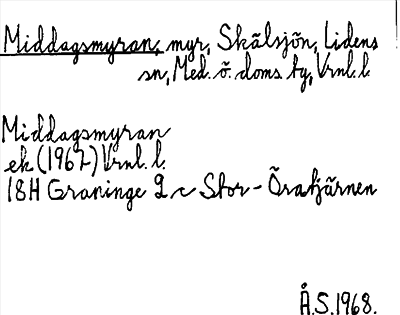 Middagsmyran, myr, Skälsjön, Lidens
sn, Med. ö. doms. tg, Vrnl. l.
Middagsmyran
ek (1967) Vrnl. l.
18H Graninge 2 c Stor-Öratjärnen
Å.S.1968.